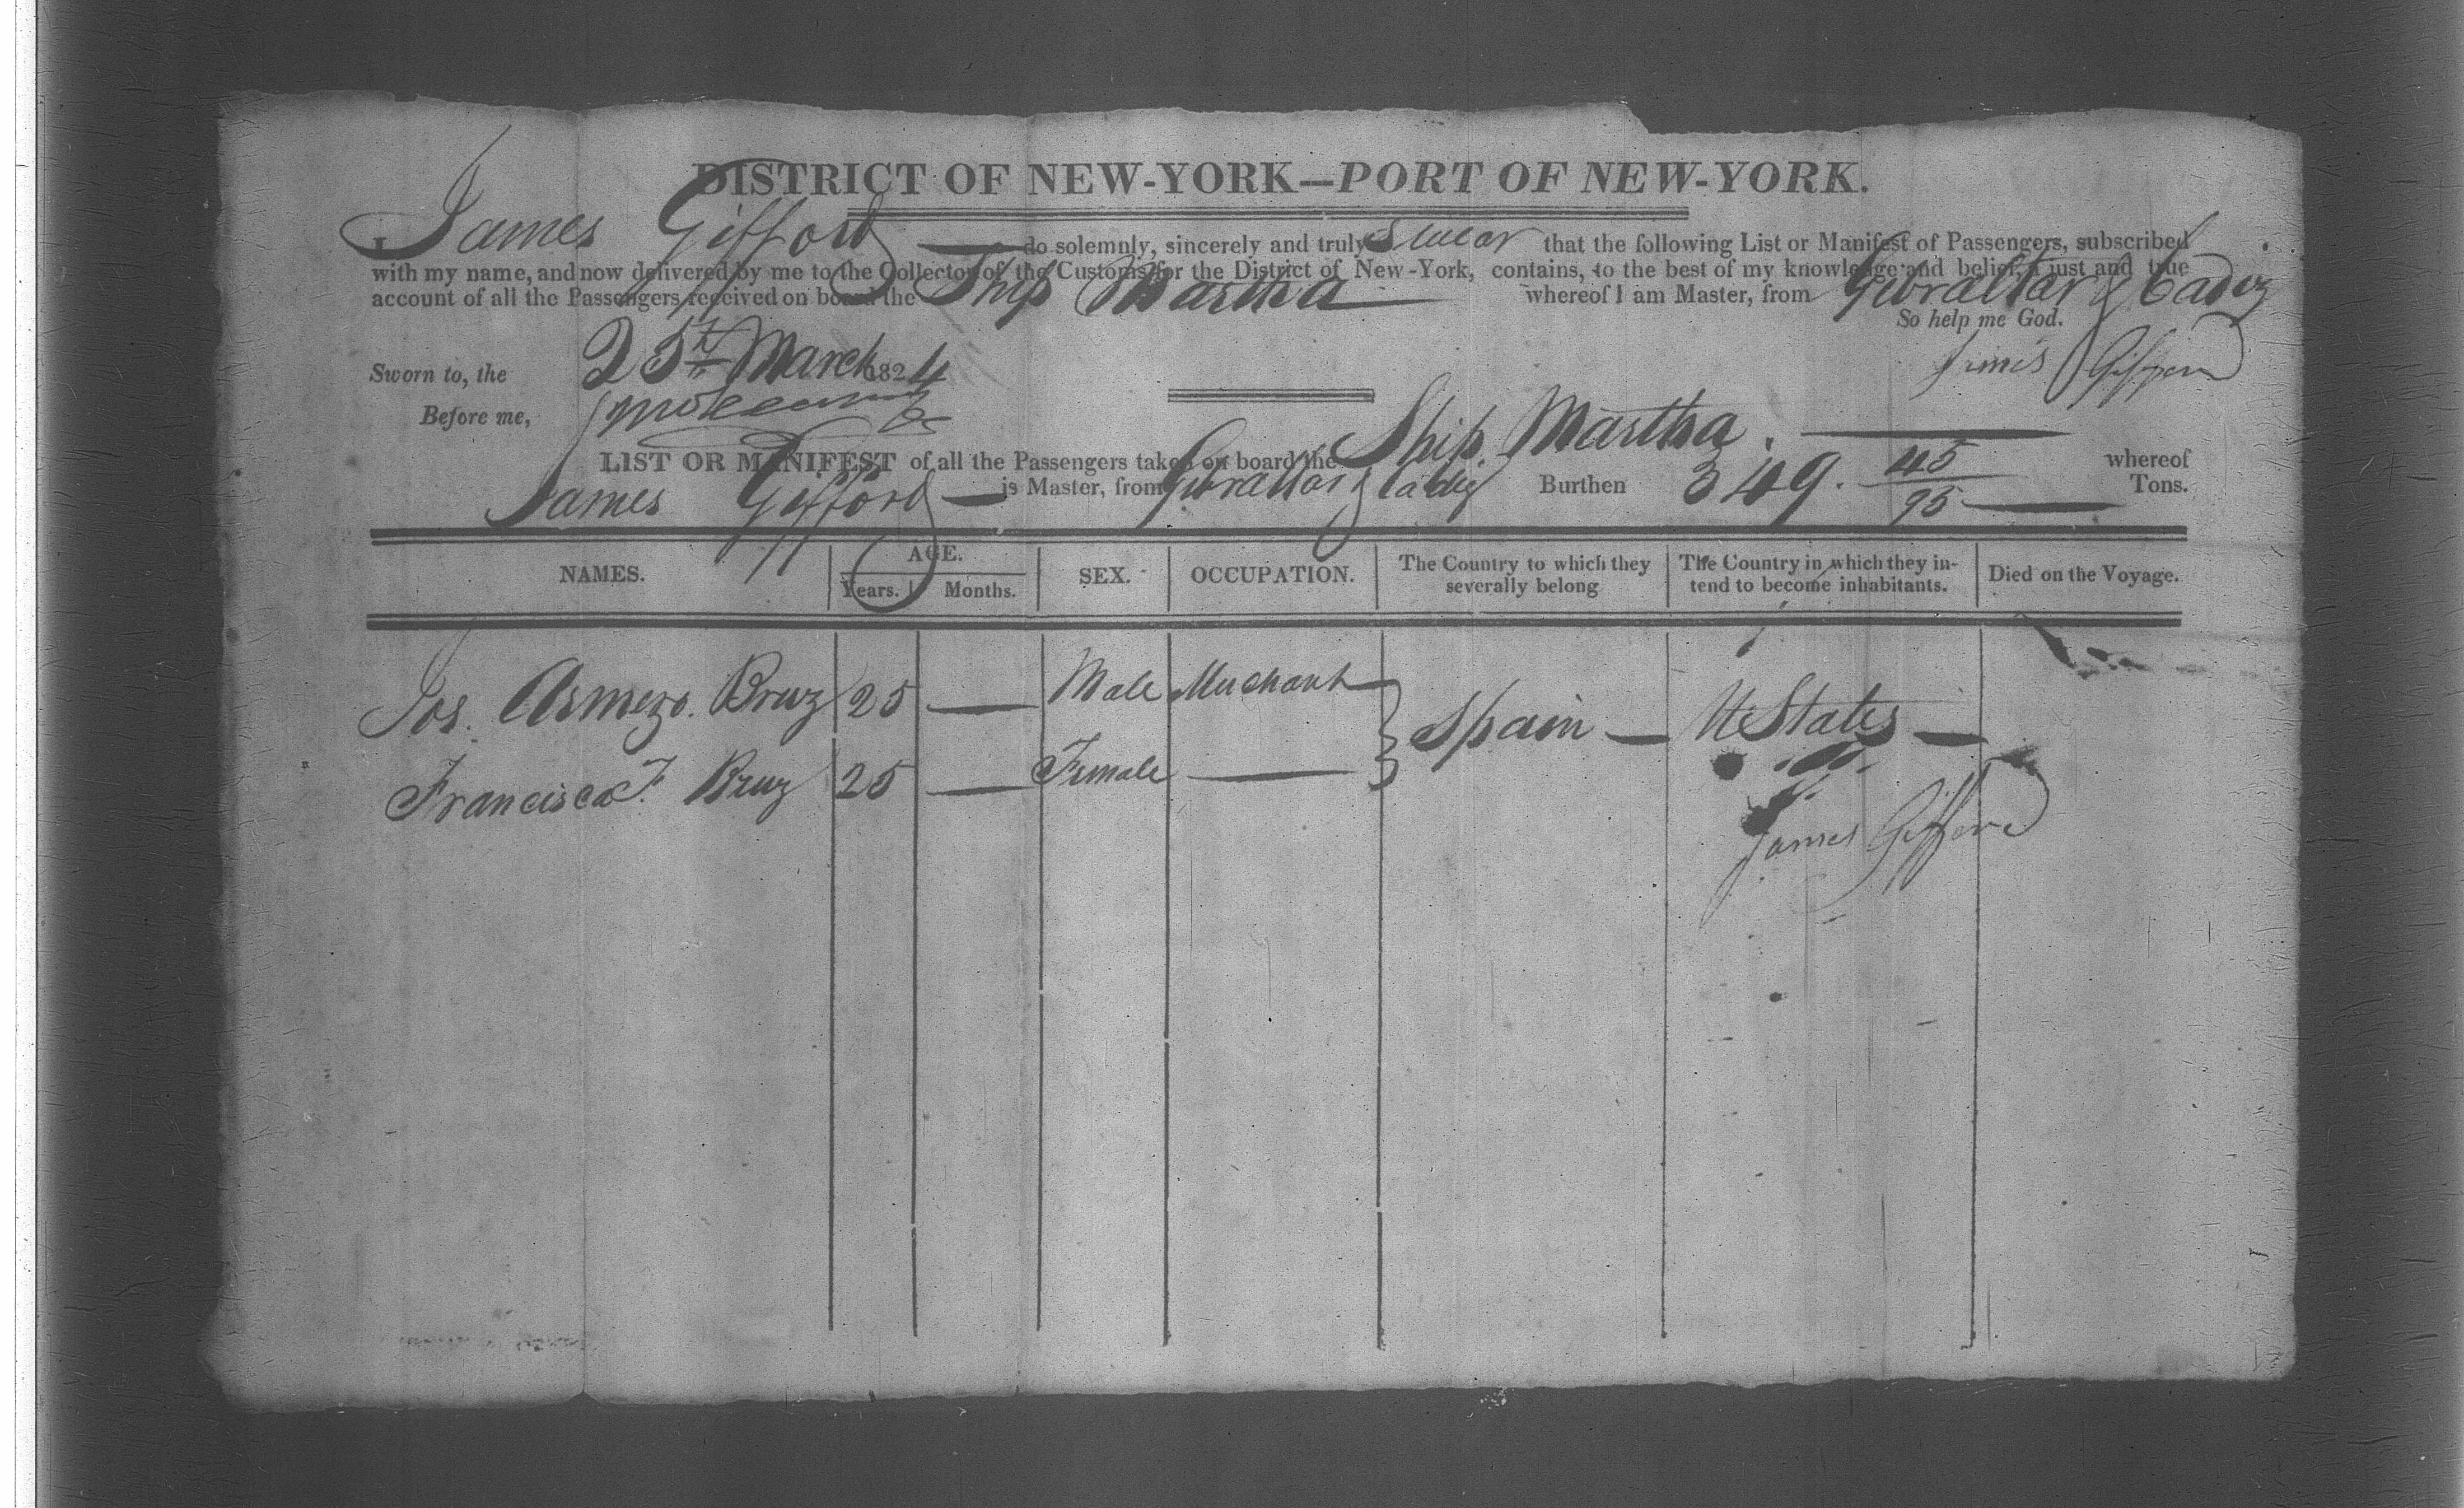 DISTRICT OF NEW-YORK—PORT OF NEW-YORK.
I James Gifford do solemnly, sincerely and truly Swear that the following List or Manifest of Passengers, subscribed
with my name, and now delivered by me to the Collector of the Customs for the District of New-York, contains, to the best of my knowledge and belief, a just and true
account of all the Passengers received on board the Ship Martha whereof I am Master, from Gibraltar & Cadiz
So help me God.
Sworn to, the 25th March 1824 James Gifford
Before me,
LIST OR MANIFEST of all the Passengers taken on board the Ship Martha. whereof
James Gifford is Master, from Gibraltar & Cadiz Burthen 349. 45/95 Tons.
NAMES. AGE. Years. Months. SEX. OCCUPATION. The Country to which they severally belong The Country in which they intend to become inhabitants. Died on the Voyage.
Jos. Armezo. Bruz 25 — Male Merchant
Spain — U States —
Francisca F. Bruz 25 — Female —
James Gifford